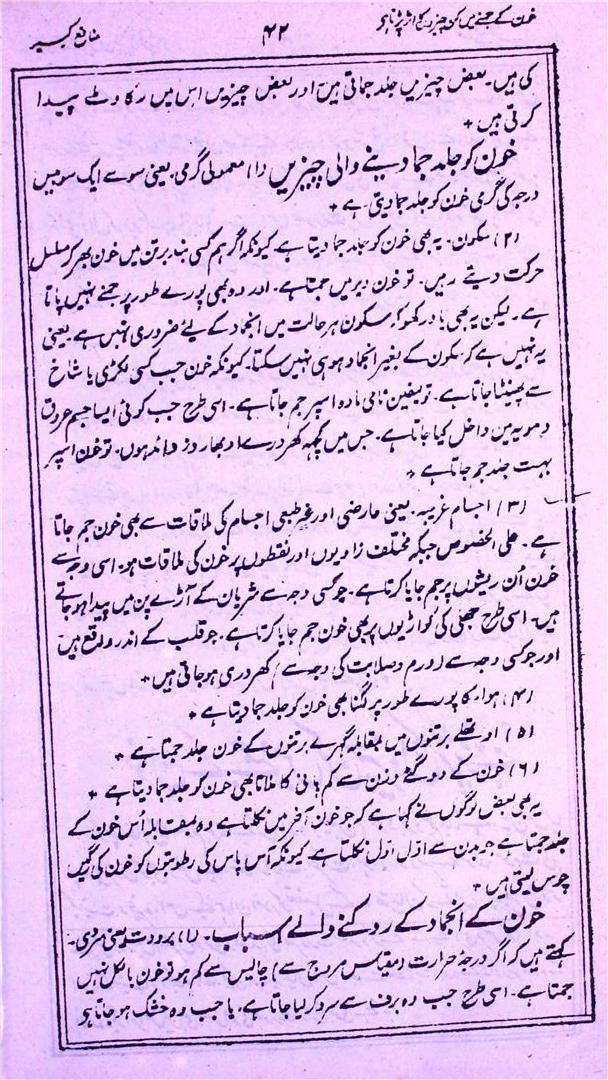 خون کے جمنے میں کن چیزوں کا اثر پڑتا ہی
۴۲
منافع کبیر
کی ہیں۔ بعض چیزیں جلد جماتی ہیں اور بعض چیزیں اس میں رکاوٹ پیدا
کرتی ہیں +
خون کو جلد جما دینے والی چیزیں (۱) معمولی گرمی۔ یعنی سو سے ایک سو بیس
درجہ کی گرمی خون کو جلد جما دیتی ہے +
(۲) سکون۔ یہ بھی خون کو جلد جما دیتا ہے کیونکہ اگر ہم کسی بند برتن میں خون بھر کر مسلسل
حرکت دیتے رہیں۔ تو خون دیر میں جمتا ہے۔ اور وہ بھی پورے طور پر جمنے نہیں پاتا
ہے۔ لیکن یہ بھی یاد رکھو کہ سکون ہر حالت میں انجماد کے لیئے ضروری نہیں ہے یعنی
یہ نہیں ہے کہ سکون کے بغیر انجماد ہو ہی نہیں سکتا۔ کیونکہ خون جب کسی لکڑی یا شاخ
سے پھینٹا جاتا ہے۔ تو لیفین نامی مادہ اسپر جم جاتا ہے۔ اسی طرح جب کوئی ایسا جسم عروق
دمویہ میں داخل کیا جاتا ہے۔ جس میں کچھ کھردرے ابھار و زوائد ہوں۔ تو خون اسپر
بہت جلد جم جاتا ہے +
(۳) اجسام غریبہ۔ یعنی عارضی اور غیر طبعی اجسام کی ملاقات سے بھی خون جم جاتا
ہے۔ علی الخصوص جبکہ مختلف زاویوں اور نقطوں پر خون کی ملاقات ہو۔ اسی وجہ سے
خون اُن ریشوں پر جم جایا کرتا ہے۔ جو کسی وجہ سے شریان کے آڑے پن میں پیدا ہو جاتے
ہیں۔ اسی طرح جھلی کی کواڑیوں پر بھی خون جم جایا کرتا ہے۔ جو قلب کے اندر واقع ہیں
اور جو کسی وجہ سے (ورم و صلابت کی وجہ سے) کھردری ہو جاتی ہیں +
(۴) ہوا۔ کا پورے طور پر لگنا بھی خون کو جلد جما دیتا ہے +
(۵) اوتھلے برتنوں میں بمقابلہ گہرے برتنوں کے خون جلد جمتا ہے +
(۶) خون کے دو گنے وزن سے کم پانی کا ملانا بھی خون کو جلد جما دیتا ہے +
یہ بھی بعض لوگوں نے کہا ہے کہ جو خون آخر میں نکلتا ہے وہ بمقابلہ اُس خون کے
جلد جمتا ہے جو بدن سے اوّل اوّل نکلتا ہے کیونکہ آس پاس کی رطوبتوں کو خون کی رگیں
چوس لیتی ہیں +
خون کے انجماد کے روکنے والے اسباب۔ (۱) برودت یعنی سردی۔
کہتے ہیں کہ اگر درجہ حرارت (مقیاس مروج سے) چالیس سے کم ہو تو خون بالکل نہیں
جمتا ہے۔ اسی طرح جب وہ برف سے سرد کر لیا جاتا ہے۔ یا جب وہ خشک ہو جاتا ہی